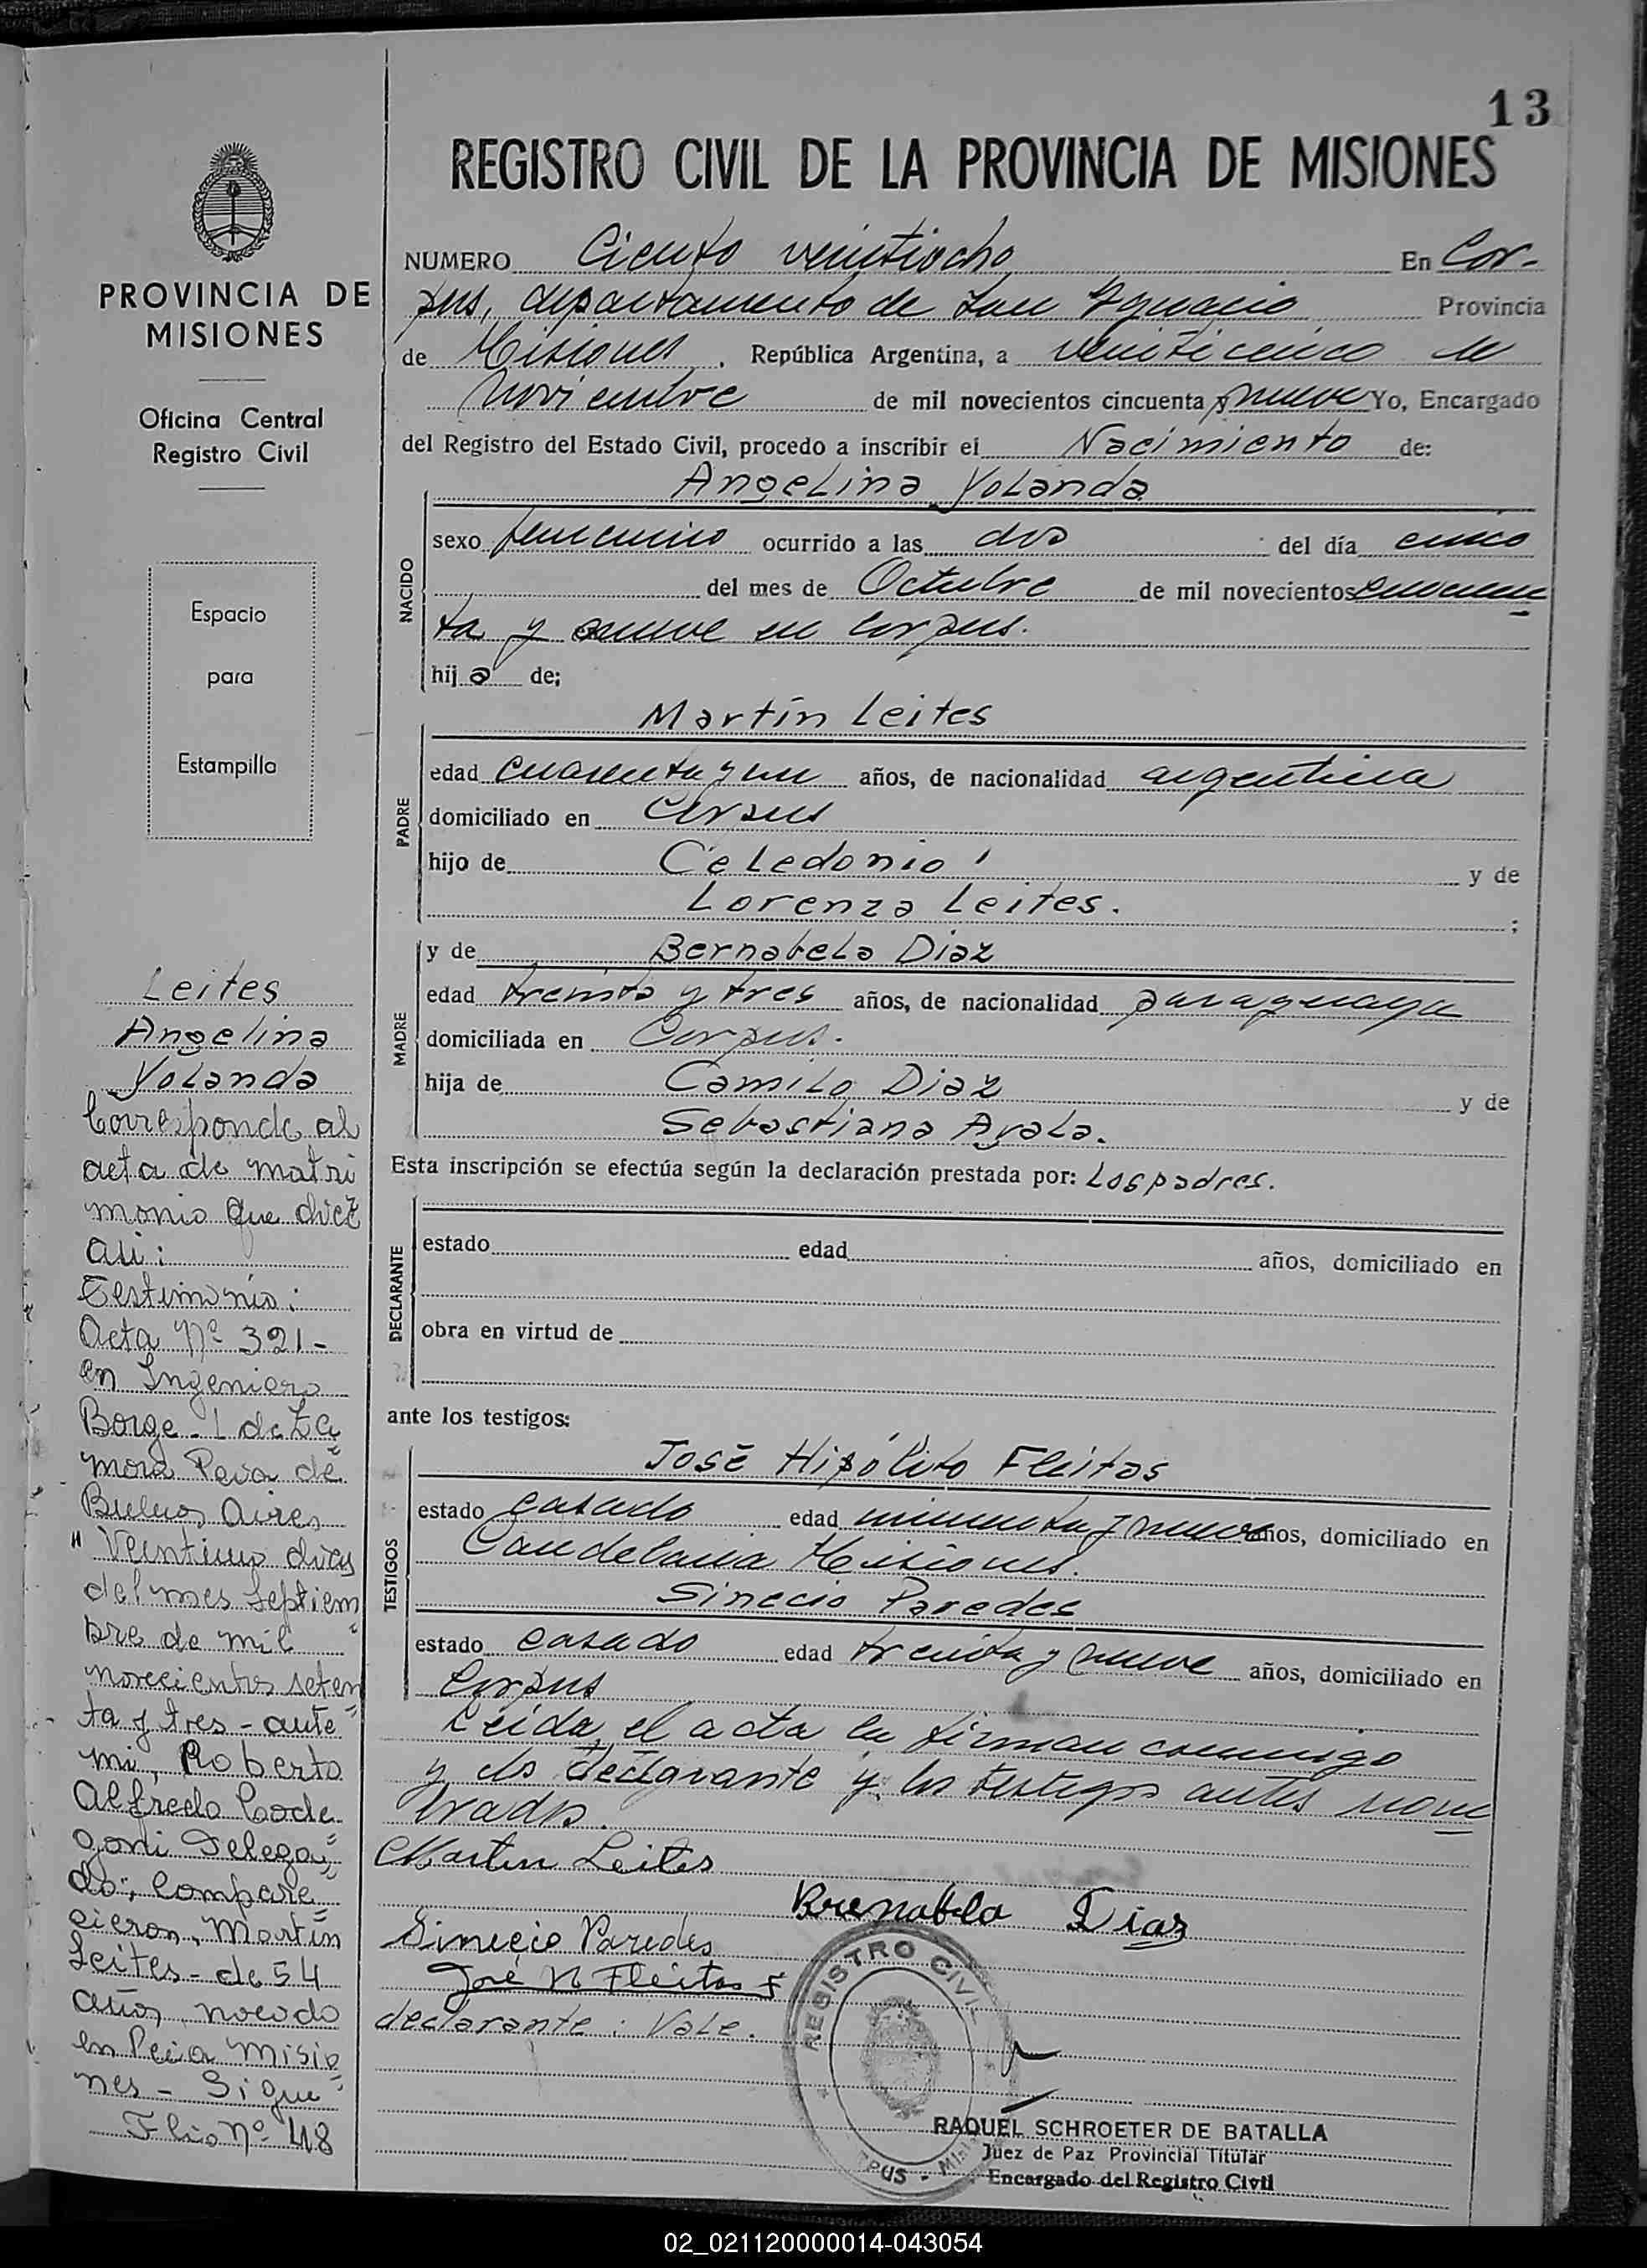 13
REGISTRO CIVIL DE LA PROVINCIA DE MISIONES
PROVINCIA DE
MISIONES
Oficina Central
Registro Civil
Espacio
para
Estampilla
Leites
Angelina
Yolanda
Corresponde al
acta de matri
monio que dice
asi:
Testimonio:
Acta Nº 321-
en Ingeniero
Borge - L de Za
mora Pcia de
Buenos Aires
" Veintiun dias
del mes Septiem
bre de mil
novecientos seten
ta y tres - ante
mi, Roberto
Alfredo
Delega
do; Compare
cieron, Martin
Leites - de 54
años, nacido
en Pcia Misio
nes - Sigue
Flio nº 48
NUMERO Ciento veintiocho En Cor-
pus, departamento de San Ygnacio Provincia
de Misiones. República Argentina, a veinticinco de
Noviembre de mil novecientos cincuenta y nueve Yo, Encargado
del Registro del Estado Civil, procedo a inscribir el Nacimiento de:
Angelina Yolanda
NACIDO
sexo femenino ocurrido a las dos del día cinco
del mes de Octubre de mil novecientos cincuen
ta y nueve en Corpus.
hija de;
Martín Leites
PADRE
edad cuarenta y un años, de nacionalidad argentina
domiciliado en Corpus
hijo de Celedonio y de
Lorenza Leites. ;
MADRE
y de Bernabela Diaz
edad treinta y tres años, de nacionalidad paraguaya
domiciliada en Corpus.
hija de Camilo Diaz y de
Sebastiana Ayala.
Esta inscripción se efectúa según la declaración prestada por: Los padres.
DECLARANTE
estado edad años, domiciliado en
obra en virtud de
ante los testigos:
José Hipólito Fleitas
TESTIGOS
estado casado edad y nueve años, domiciliado en
Candelaria Misiones.
Sinecio Paredes
estado casado edad treinta y nueve años, domiciliado en
Corpus
Leida el acta la firman conmigo
y los declarante y los testigos antes nom
brados.
Martin Leites
Brenabela Diaz
Sinecio Paredes
José H Fleitas
declarante: Vale.
REGISTRO CIVIL
RAQUEL SCHROETER DE BATALLA
Juez de Paz Provincial Titular
Encargado del Registro Civil
02_021120000014-043054